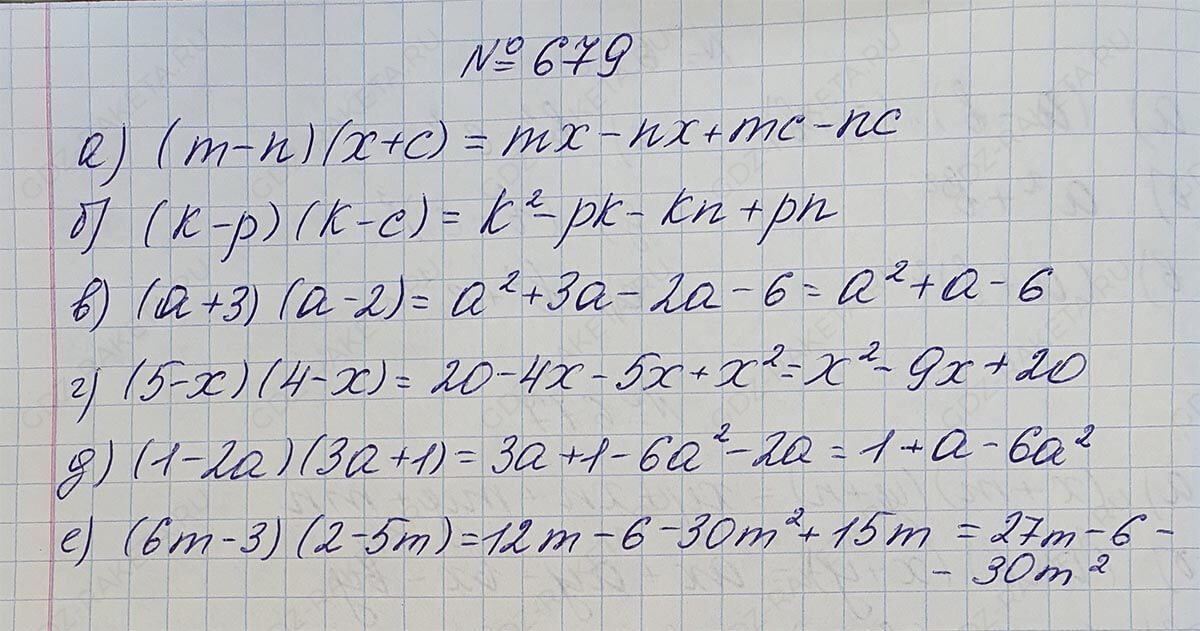 №679
а) (m-n)(x+c) = mx-nx+mc-nc
б) (k-p)(k-c) = k²-pk-kn+pn
в) (a+3)(a-2) = a²+3a-2a-6 = a²+a-6
г) (5-x)(4-x) = 20-4x-5x+x² = x²-9x+20
д) (1-2a)(3a+1) = 3a+1-6a²-2a = 1+a-6a²
е) (6m-3)(2-5m) = 12m-6-30m²+15m = 27m-6-
-30m²